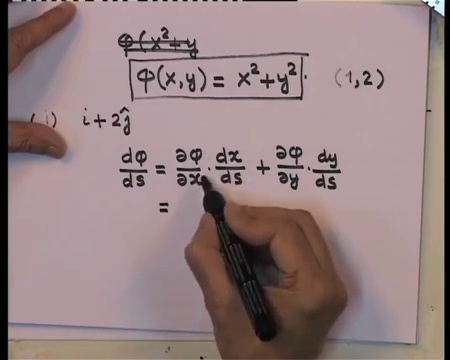 φ(x²+y
φ(x,y) = x²+y². (1,2)
(i) i+2ĵ
dφ/ds = ∂φ/∂x · dx/ds + ∂φ/∂y · dy/ds
=